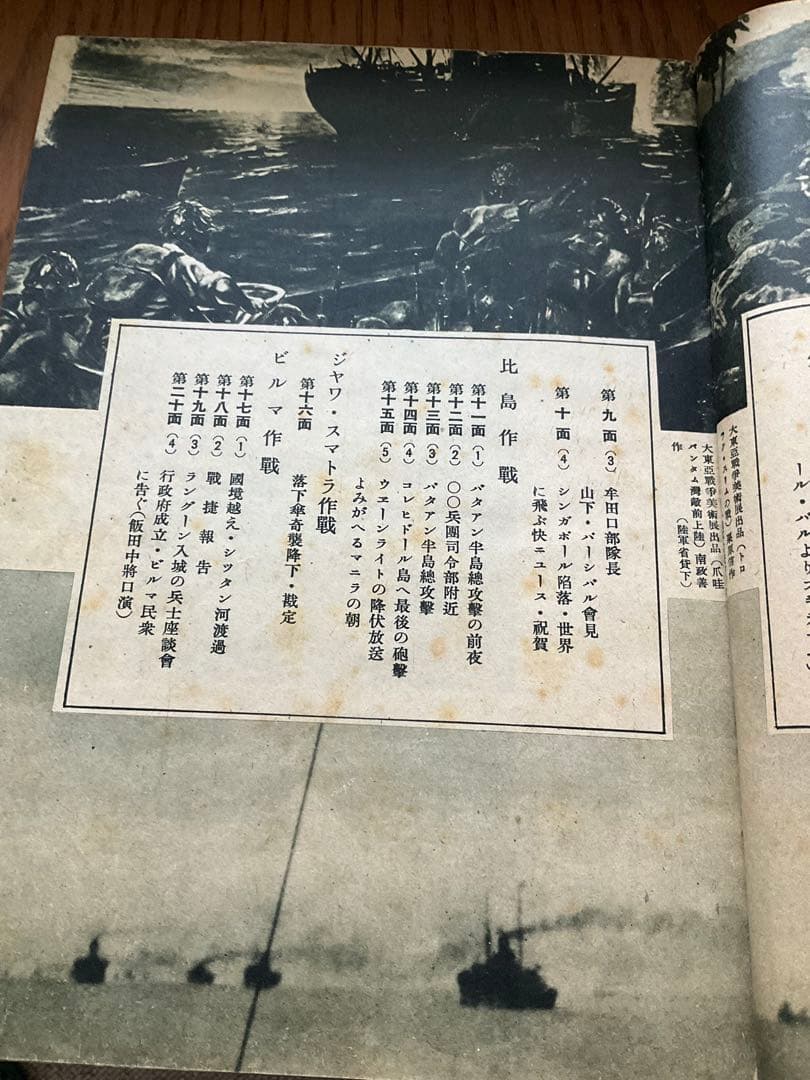 大東亞戰爭美術展出品(爪哇
バンタム灣敵前上陸)南政善
作
(陸軍省貸下)
第九面(3)牟田口部隊長
山下・パーシバル會見
第十面(4)シンガポール陷落・世界
に飛ぶ快ニュース・祝賀
比島作戰
第十一面(1)バタアン半島總攻擊の前夜
第十二面(2)〇〇兵團司令部附近
第十三面(3)バタアン半島總攻擊
第十四面(4)コレヒドール島へ最後の砲擊
第十五面(5)ウエーンライトの降伏放送
よみがへるマニラの朝
ジヤワ・スマトラ作戰
第十六面 落下傘奇襲降下・戡定
ビルマ作戰
第十七面(1)國境越え・シツタン河渡過
第十八面(2)戰捷報告
第十九面(3)ラングーン入城の兵士座談會
第二十面(4)行政府成立・ビルマ民衆
に告ぐ(飯田中將口演)